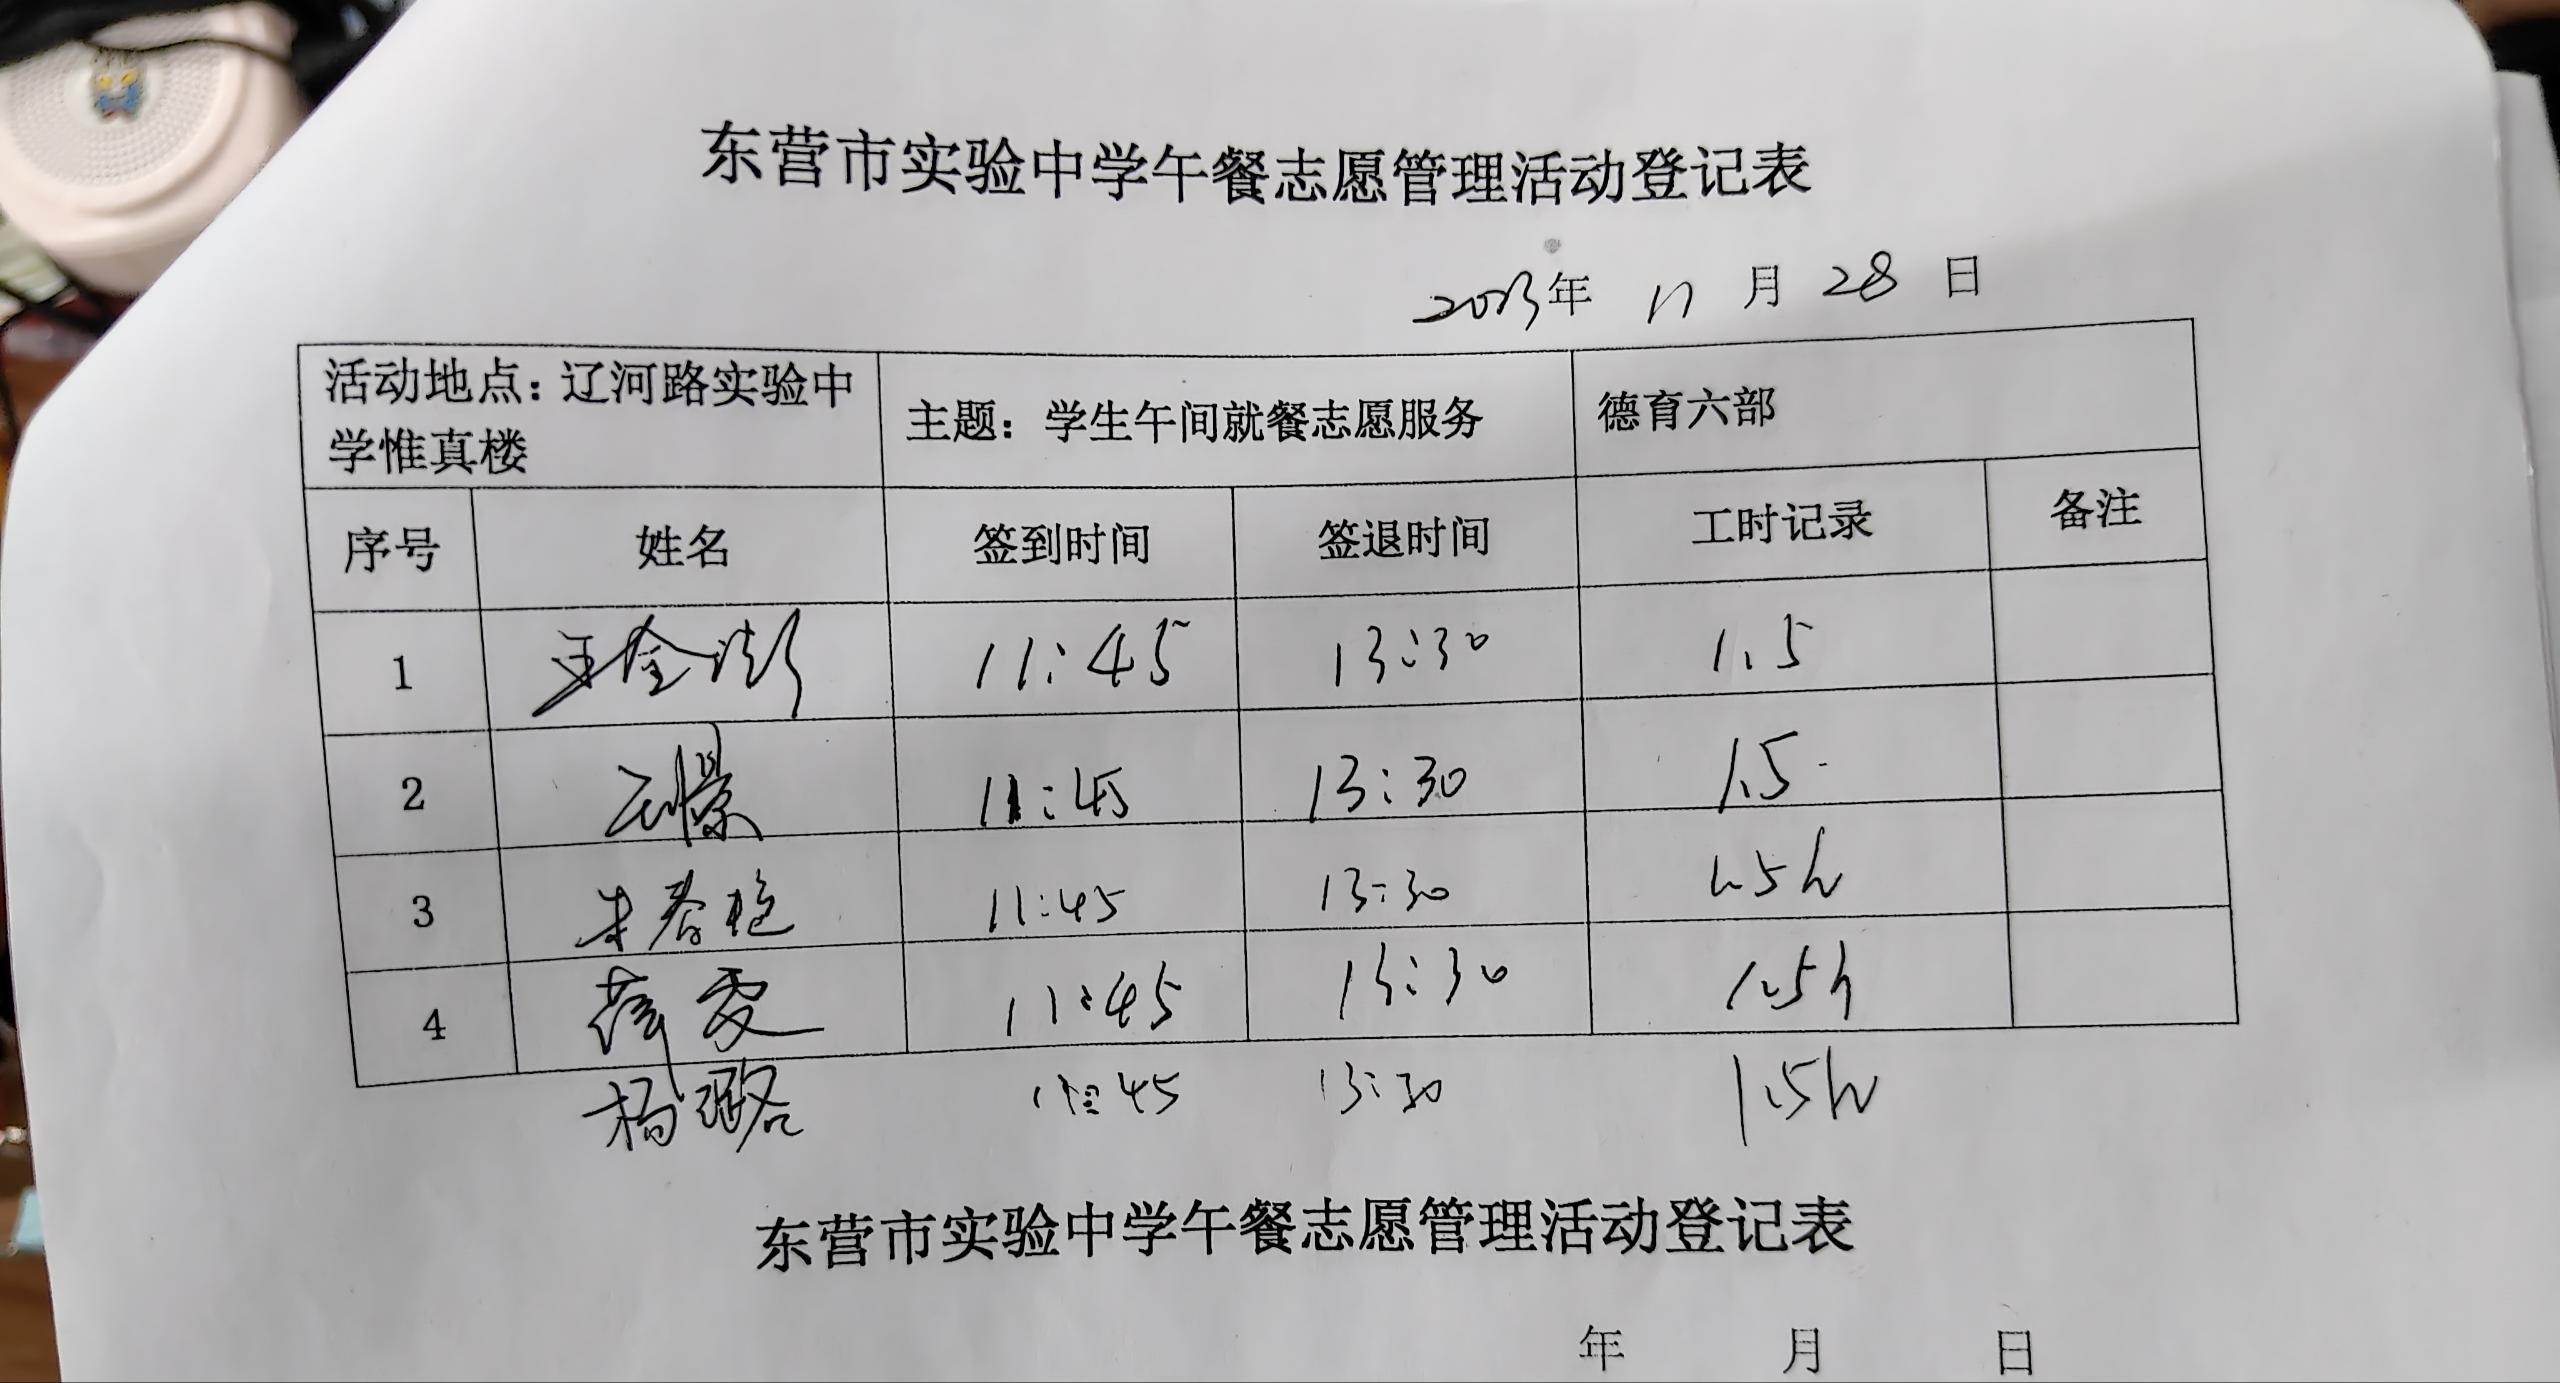 东营市实验中学午餐志愿管理活动登记表
2023年 11 月 28 日
活动地点：辽河路实验中学惟真楼 主题：学生午间就餐志愿服务 德育六部
序号 姓名 签到时间 签退时间 工时记录 备注
1 11:45 13:30 1.5
2 11:45 13:30 1.5
3 朱春艳 11:45 13:30 1.5h
4 薛雯 11:45 13:30 1.5h
杨璐 11:45 13:30 1.5h
东营市实验中学午餐志愿管理活动登记表
年 月 日